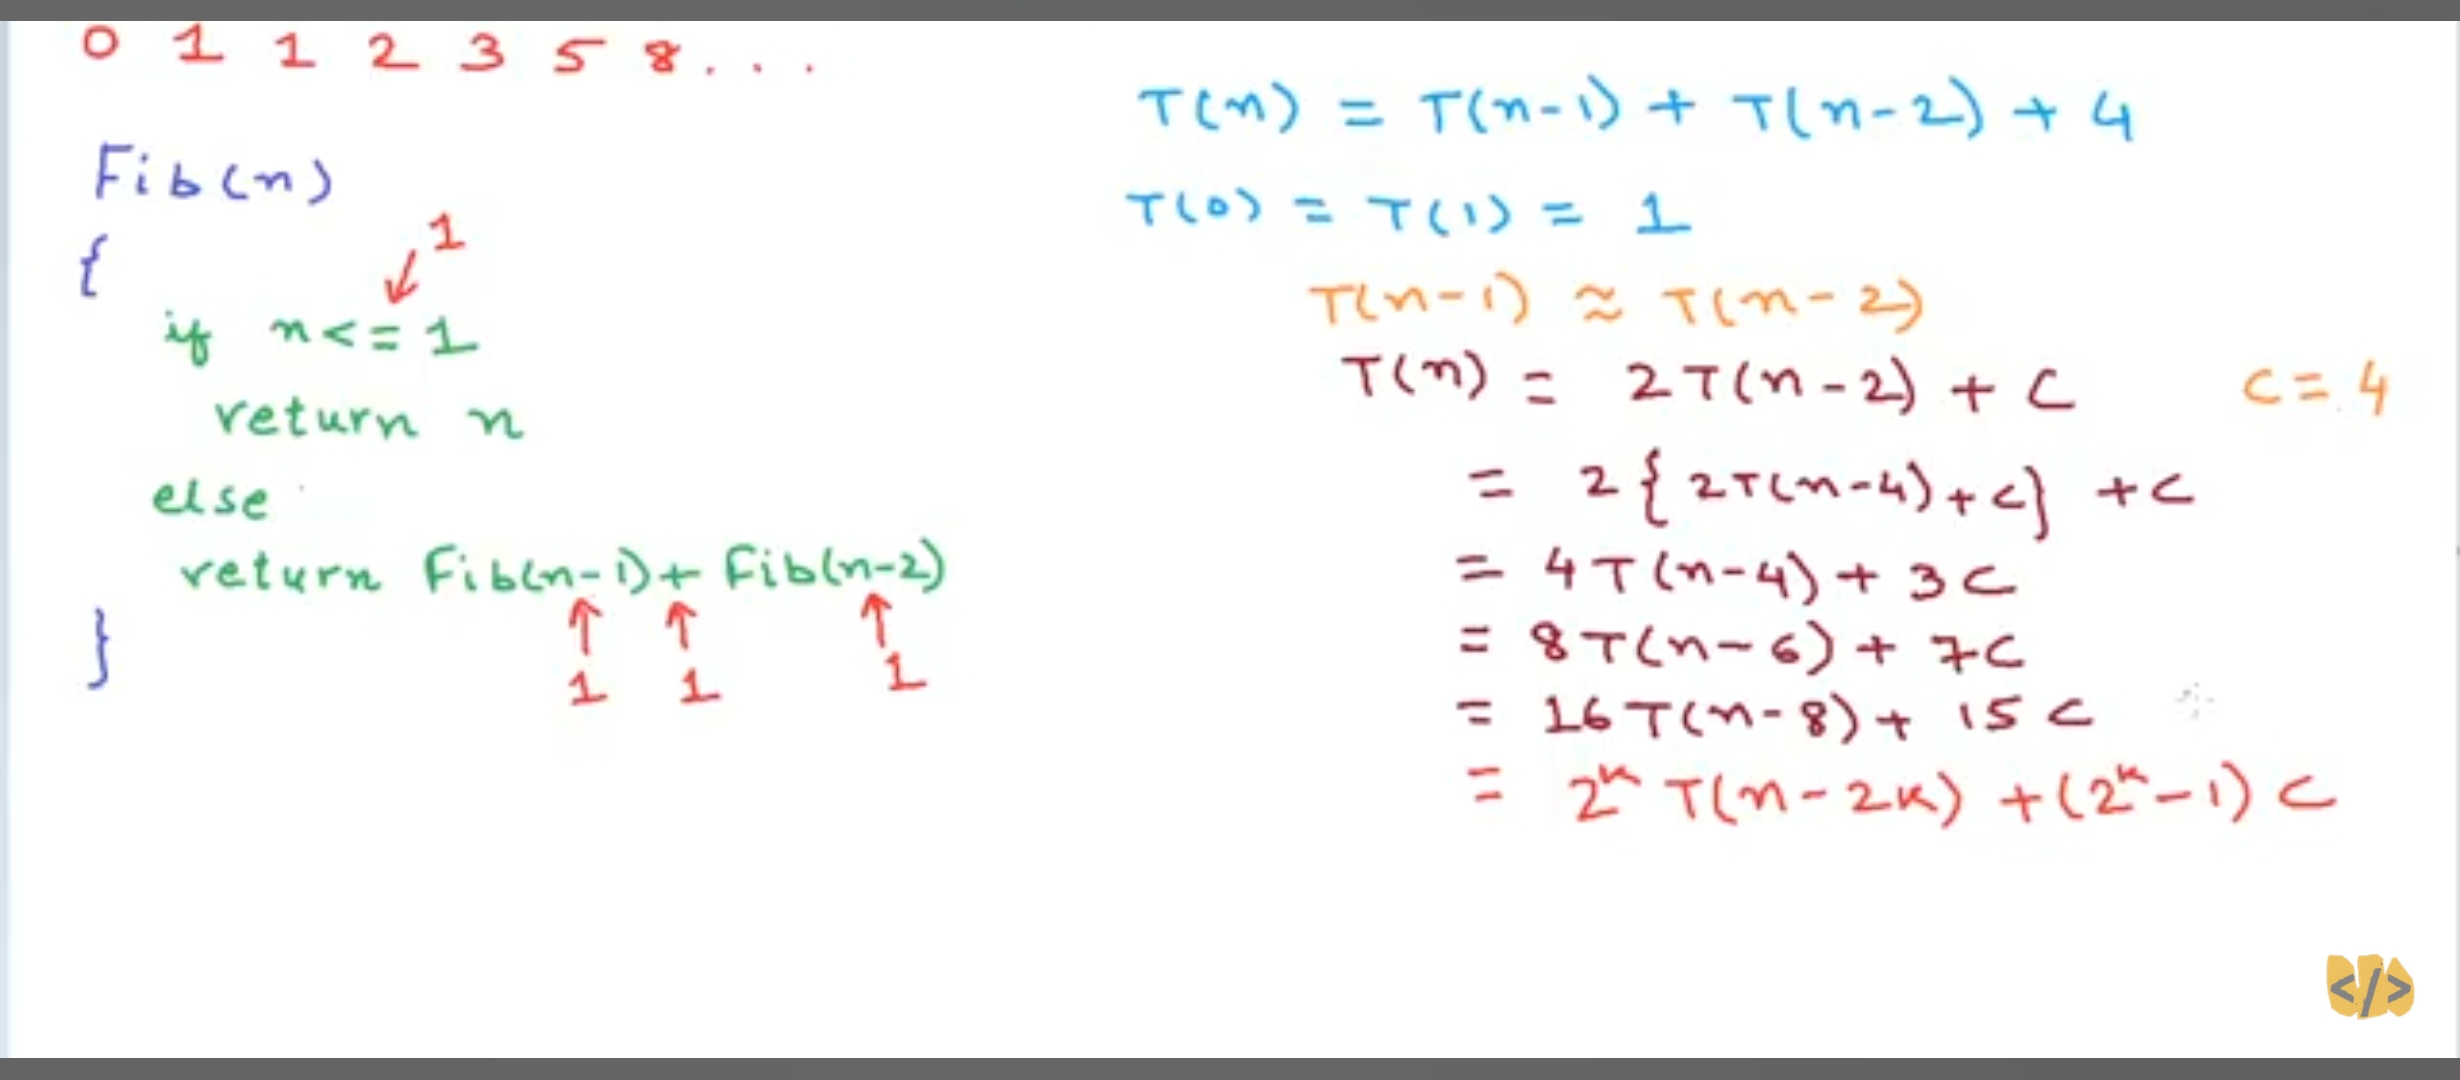 0 1 1 2 3 5 8 . . .
Fib(n)
{
1
if n<=1
return n
else
return Fib(n-1)+ Fib(n-2)
1 1 1
}
T(n) = T(n-1) + T(n-2) + 4
T(0) = T(1) = 1
T(n-1) ≈ T(n-2)
T(n) = 2T(n-2) + C C = 4
= 2{2T(n-4)+C} + C
= 4T(n-4) + 3C
= 8T(n-6) + 7C
= 16T(n-8) + 15C
= 2ᵏ T(n-2k) + (2ᵏ-1) C
</>